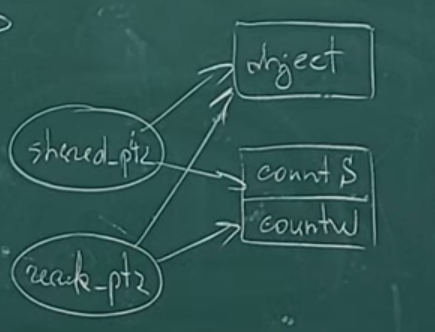 object
shared_ptr
count S
countW
weak_ptr